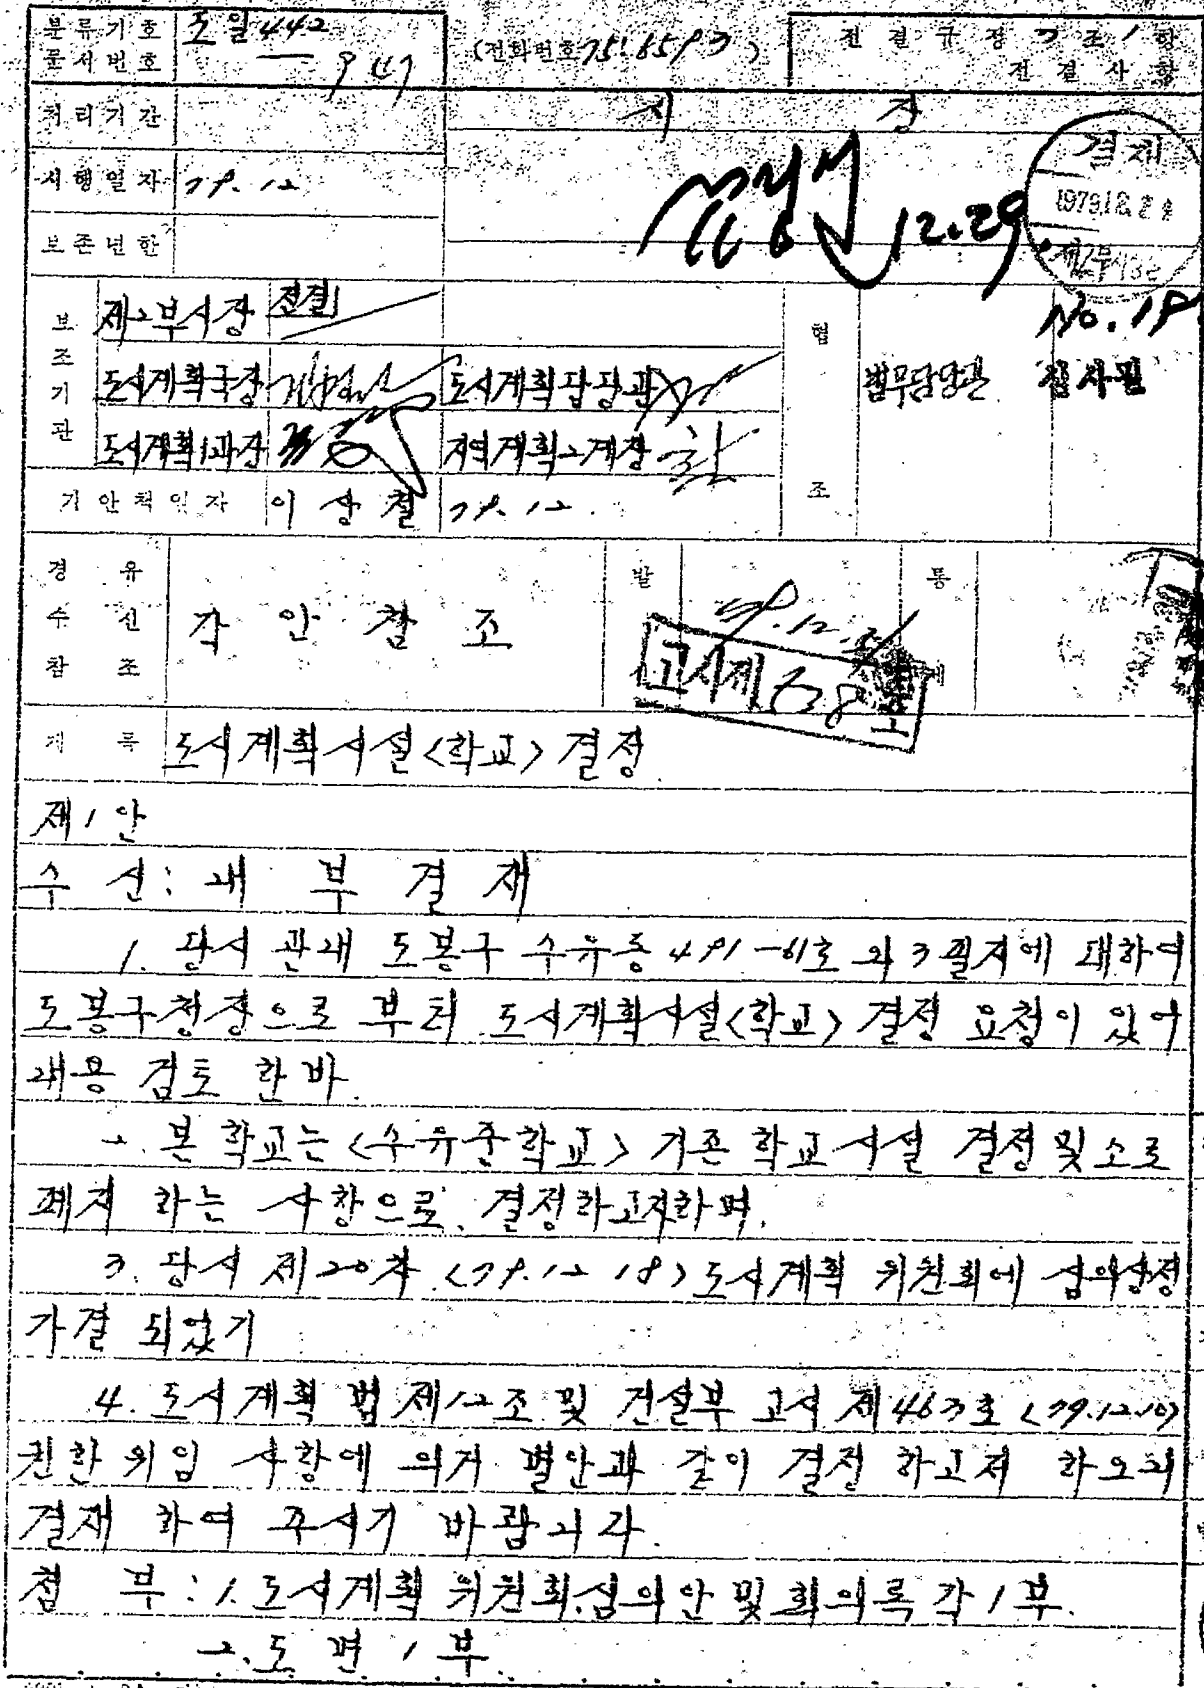 분류기호 문서번호 도일442 — 947
(전화번호 75.6593)
전결규정 7조 1항 전결사항
처리기간
시장
시행일자 79.12
12.29
결재
보존년한
보조기관
제2부시장 전결
협조
No. 19
도시계획국장
도시계획담당관
법무담당관
도시계획1과장
지역계획2계장
기안책임자 이상철 79.12.
경유 수신 참조
각안참조
발
통
79.12.
고시제 호
제목 도시계획시설<학교> 결정
제1안
수신: 내부결재
1. 당시 관내 도봉구 수유동 491-61호 외 3필지에 대하여
도봉구청장으로 부터 도시계획시설<학교> 결정 요청이 있어
내용 검토 한바.
2. 본 학교는 <수유중학교> 기존 학교 시설 결정 및 소로
폐지 하는 사항으로, 결정하고자하며,
3. 당시 제20차 <79.12 18> 도시계획 위원회에 심의상정
가결 되었기
4. 도시계획 법 제12조 및 건설부 고시 제463호 <79.12.10>
권한 위임 사항에 의거 별안과 같이 결정 하고저 하오니
결재 하여 주시기 바랍니다.
첨부: 1. 도시계획 위원회 심의안 및 회의록 각 1부.
2. 도면 1부.